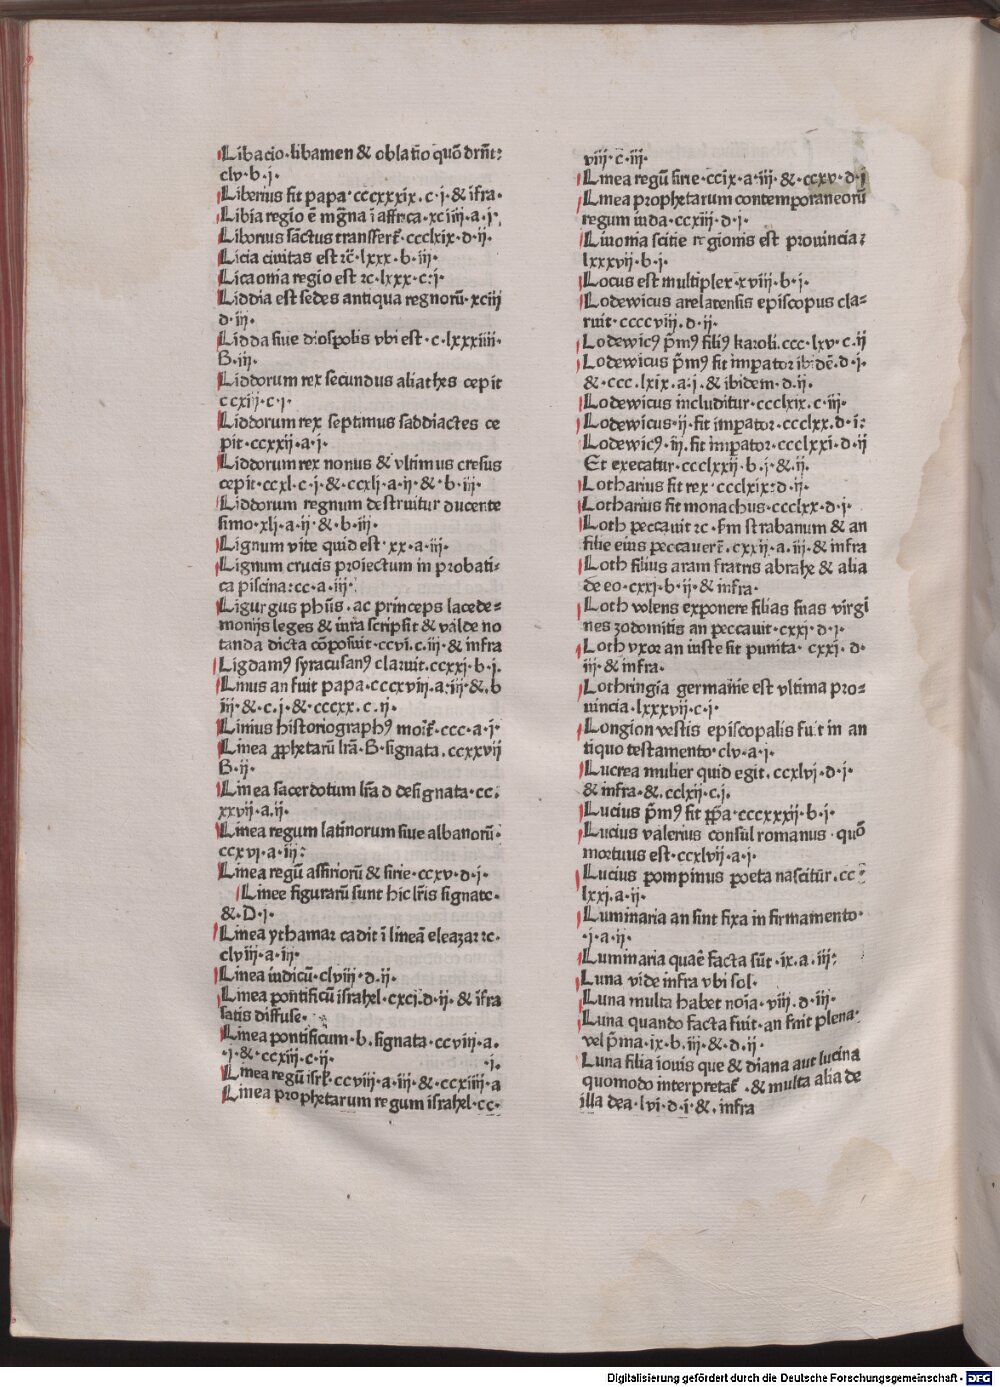 Libacio·libamen & oblatio quō drn̄t:
clv·b·j·
Liberius fit papa·cccxxxix·c·j·& ifra·
Libia regio ē mḡna ī affrica·xciiij·a·j·
Liborius sāctus transfert᷑·ccclxix·d·ij·
Licia ciuitas est ⁊c̄·lxxx·b·iij·
Licaonia regio est ⁊c·lxxx·c:j·
Liddia est sedes antiqua regnorū·xciij
d·iij·
Lidda siue diospolis vbi est·c·lxxxiiij·
B·iij·
Liddorum rex secundus aliathes cepit
ccxij·c·j·
Liddorum rex septimus saddiactes ce
pit·ccxxij·a·j·
Liddorum rex nonus & vltimus cresus
cepit·ccxl·c·j·&·ccxlj·a·ij·&·b·iij·
Liddorum regnum destruitur ducente
simo·xlj·a·ij·&·b·iij·
Lignum vite quid est·xx·a·iij·
Lignum crucis proiectum in probati⸗
ca piscina:cc·a·iij·
Ligurgus phūs·ac princeps lacede⸗
monijs leges & iura scripsit & valde no
tanda dicta cōposuit·ccvi·c·iij·& infra
Ligdamꝰ syracusanꝰ claruit·ccxxj·b·j·
Linus an fuit papa·cccxviij·a:iij·&·b
iij·&·c·j·&·cccxx·c·ij·
Liuius historiographꝰ moit᷑·ccc·a·j·
Linea ꝓphetarū lrā·B·signata·ccxxvij
B·ij·
Linea sacerdotum lrā d designata·cc·
xxvij·a·ij·
Linea regum latinorum siue albanorū·
ccxvj·a·iij:
Linea regū assiriorū & sirie·ccxv·d·j·
Linee figurarū sunt hic lrīs signate·
&·D·j·
Linea ythamar cadit ī lineā eleazar ⁊c·
clviij·a·iij·
Linea iudicū·clviij·d·ij·
Linea pontificū israhel·cxcj·d·ij·& ifra
satis diffuse·
Linea pontificum·b·signata·ccviij·a·
·j·&·ccxiij·c·ij·
·j·
Linea regū isrł·ccviij·a·iij·&·ccxiiij·a
Linea prophetarum regum israhel·cc·
viij·c·iij·
Linea regū sirie·ccix·a·iij·&·ccxv·d·j
Linea prophetarum contemporaneorū
regum iuda·ccxiij·d·j·
Liuonia scitie regionis est prouincia:
lxxxvij·b·j·
Locus est multiplex·xviij·b·j·
Lodewicus arelatensis episcopus cla⸗
ruit·ccccviij·d·ij·
Lodewicꝰ p̄mꝰ filiꝰ karoli·ccc·lxv·c·ij
Lodewicus p̄mꝰ fit imperator ibidē·d·j·
&·ccc·lxix·a·j·& ibidem·d·ij·
Lodewicus includitur·ccclxix·c·iij·
Lodewicus·ij·fit imperator·ccclxx·d·j:
Lodewicꝰ·iij·fit imperator·ccclxxj·d·ij
Et execatur·ccclxxij·b·j·&·ij·
Lotharius fit rex·ccclxix:d·ij·
Lotharius fit monachus·ccclxx·d·j·
Loth peccauit ⁊c·f̄m strabanum & an
filie eius peccauer̄t·cxxij·a·iij·& infra
Loth filius aram fratris abrahe & alia
de eo·cxxj·b·ij·& infra·
Loth volens exponere filias suas virgi
nes zodomitis an peccauit·cxxj·d·j·
Loth vxor an iuste sit punita·cxxj·d·
iij·& infra·
Lothringia germanie est vltima pro⸗
uincia·lxxxvij·c·j·
Longion vestis episcopalis fuit in an
tiquo testamento·clv·a·j·
Lucrea mulier quid egit·ccxlvj·d·j·
& infra·&·cclxij·c·j·
Lucius p̄mꝰ fit ꝑpa·cccxxxij·b·j·
Lucius valerius consul romanus·quō
mortuus est·ccxlvij·a·j·
Lucius pompinus poeta nascitūr·cc⸗
lxxj·a·ij·
Luminaria an sint fixa in firmamento·
·j·a·ij·
Luminaria quaē facta sūt·ix·a·iij:
Luna vide infra vbi sol·
Luna multa habet noīa·viij·d·iij·
Luna quando facta fuit·an fuit plena·
vel p̄ma·ix·b·iij·&·d·ij·
Luna filia iouis que & diana aut lucina
quomodo interpretat᷑·& multa alia de
illa dea·lvj·d·j·&·infra
Digitalisierung gefördert durch die Deutsche Forschungsgemeinschaft - DFG